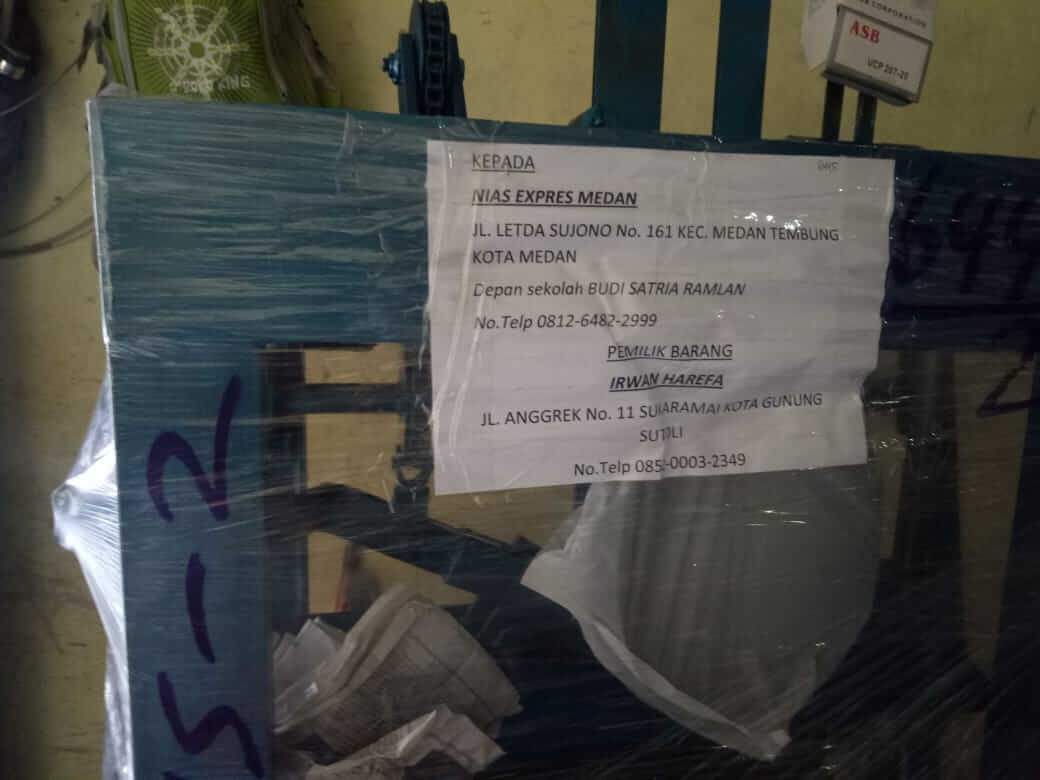 CORPORATION
ASB
UCP 207-20
KEPADA
NIAS EXPRES MEDAN
JL. LETDA SUJONO No. 161 KEC. MEDAN TEMBUNG
KOTA MEDAN
Depan sekolah BUDI SATRIA RAMLAN
No.Telp 0812-6482-2999
PEMILIK BARANG
IRWAN HAREFA
JL. ANGGREK No. 11 KOTA GUNUNG
No.Telp 085-0003-2349
5-2